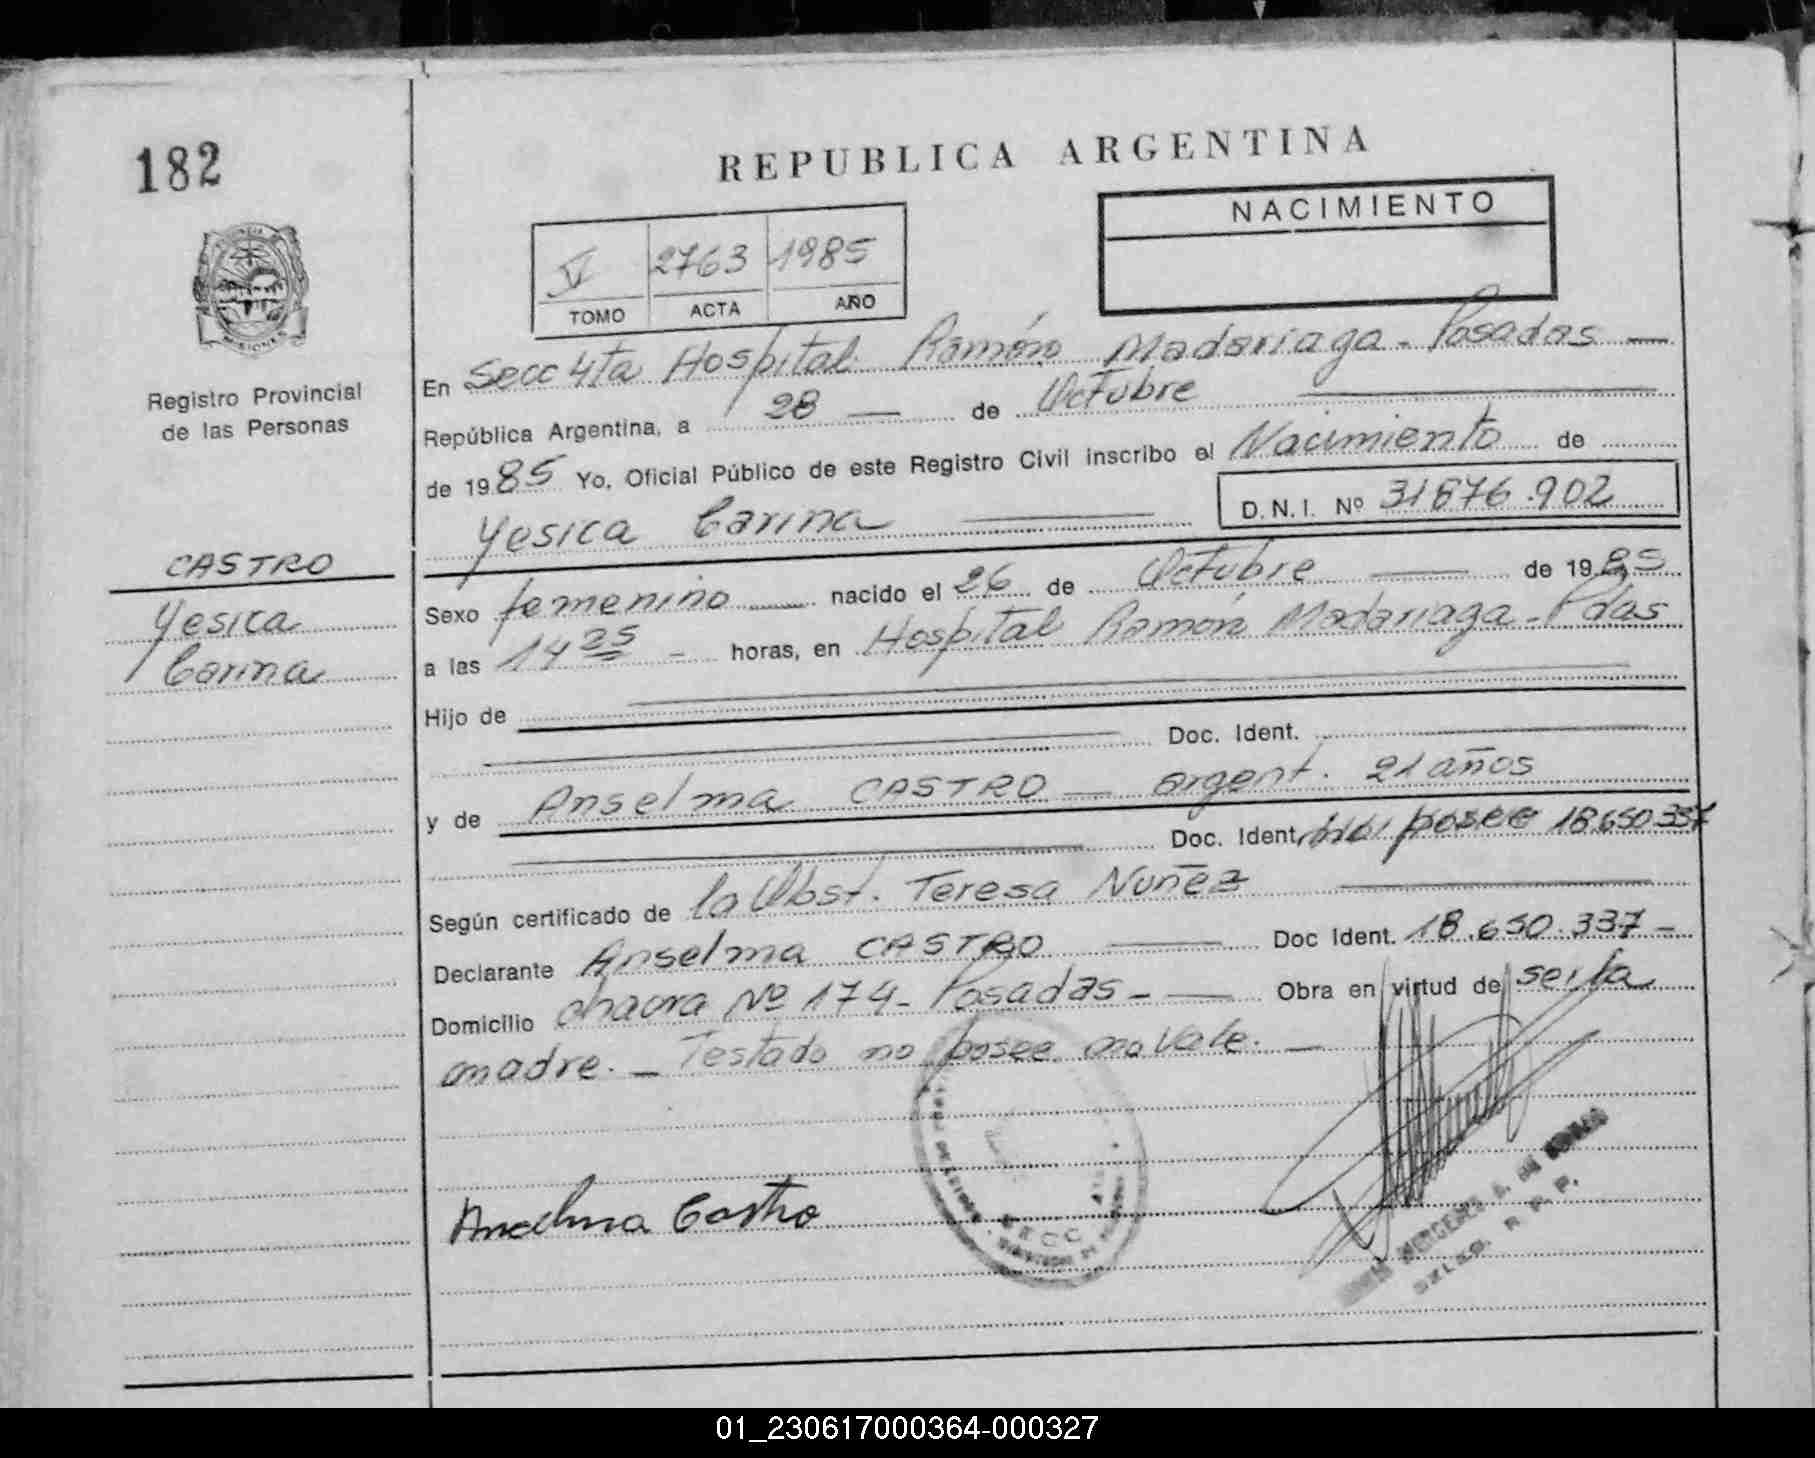 182
REPUBLICA ARGENTINA
NACIMIENTO
V 2763 1985
TOMO ACTA AÑO
PROVINCIA
MISIONES
Registro Provincial
de las Personas
En Secc 4ta Hospital Ramón Madariaga - Posadas —
República Argentina, a 28 — de Octubre
de 1985 Yo, Oficial Público de este Registro Civil inscribo el Nacimiento de
Yesica Carina D.N.I. Nº 31876.902
CASTRO
Yesica
Carina
Sexo femenino nacido el 26 de Octubre — de 1985
a las 14 25 - horas, en Hospital Ramón Madariaga - Pdas
Hijo de
Doc. Ident.
y de Anselma CASTRO — argent. 21 años
Doc. Ident. no posee 18.650.337
Según certificado de la Obst. Teresa Nuñez
Declarante Anselma CASTRO — Doc Ident. 18.650.337 -
Domicilio chacra Nº 174 - Posadas - — Obra en virtud de ser la
madre. — Testado no posee no vale. —
Anselma Castro
SECC 4ta
MERCEDES
R. P. P.
01_230617000364-000327